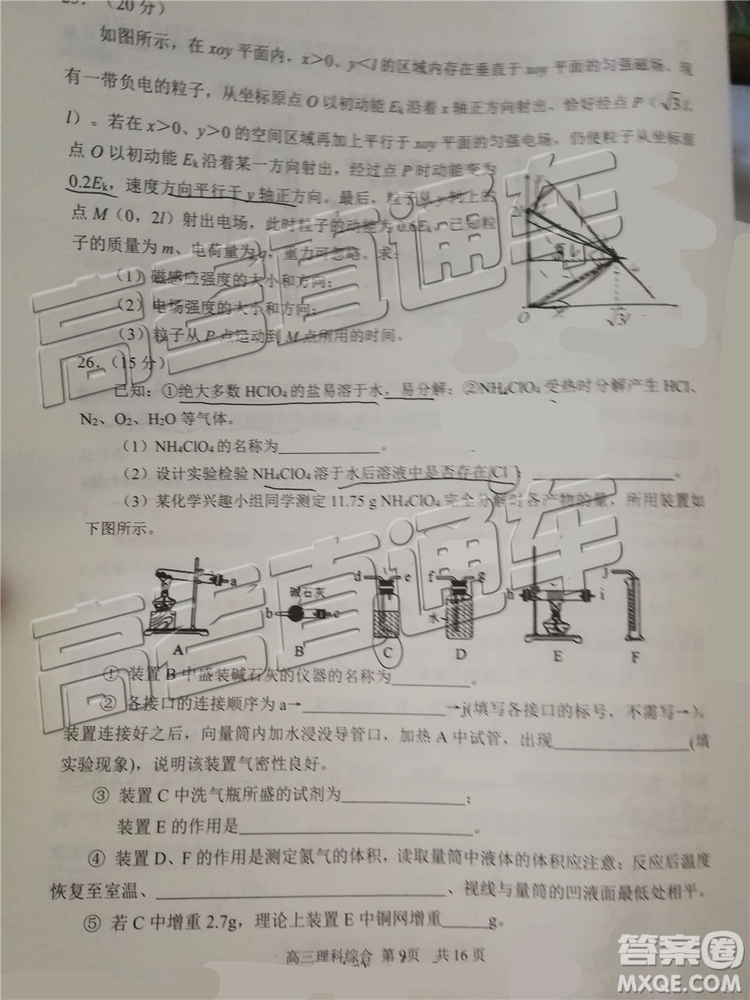 25.(20分)
如图所示，在 xoy 平面内，x>0、y<l 的区域内存在垂直于 xoy 平面的匀强磁场。现
有一带负电的粒子，从坐标原点 O 以初动能 Ek 沿着 x 轴正方向射出，恰好经点 P（√3l，
l）。若在 x>0、y>0 的空间区域再加上平行于 xoy 平面的匀强电场，仍使粒子从坐标原
点 O 以初动能 Ek 沿着某一方向射出，经过点 P 时动能变为
0.2Ek，速度方向平行于 y 轴正方向。最后，粒子从 y 轴上的
点 M（0，2l）射出电场，此时粒子的动能为 0.6Ek。已知粒
子的质量为 m、电荷量为 q，重力可忽略。求：
（1）磁感应强度的大小和方向；
（2）电场强度的大小和方向；
（3）粒子从 P 点运动到 M 点所用的时间。
y
2l
P
O
√3l
x
26.（15分）
已知：①绝大多数 HClO₄ 的盐易溶于水，易分解；②NH₄ClO₄ 受热时分解产生 HCl、
N₂、O₂、H₂O 等气体。
（1）NH₄ClO₄ 的名称为____________。
（2）设计实验检验 NH₄ClO₄ 溶于水后溶液中是否存在 Cl⁻____________。
（3）某化学兴趣小组同学测定 11.75 g NH₄ClO₄ 完全分解时各产物的量，所用装置如
下图所示。
碱石灰
a b c d e f g h i j
水
A B C D E F
① 装置 B 中盛装碱石灰的仪器的名称为__________。
② 各接口的连接顺序为 a→____________→j(填写各接口的标号，不需写→)。
装置连接好之后，向量筒内加水浸没导管口，加热 A 中试管，出现____________(填
实验现象)，说明该装置气密性良好。
③ 装置 C 中洗气瓶所盛的试剂为____________；
装置 E 的作用是____________。
④ 装置 D、F 的作用是测定氮气的体积，读取量筒中液体的体积应注意：反应后温度
恢复至室温、____________、视线与量筒的凹液面最低处相平。
⑤ 若 C 中增重 2.7g，理论上装置 E 中铜网增重_____g。
高三理科综合 第9页 共16页
高考直通车
高考直通车
答案圈
MXQE.COM